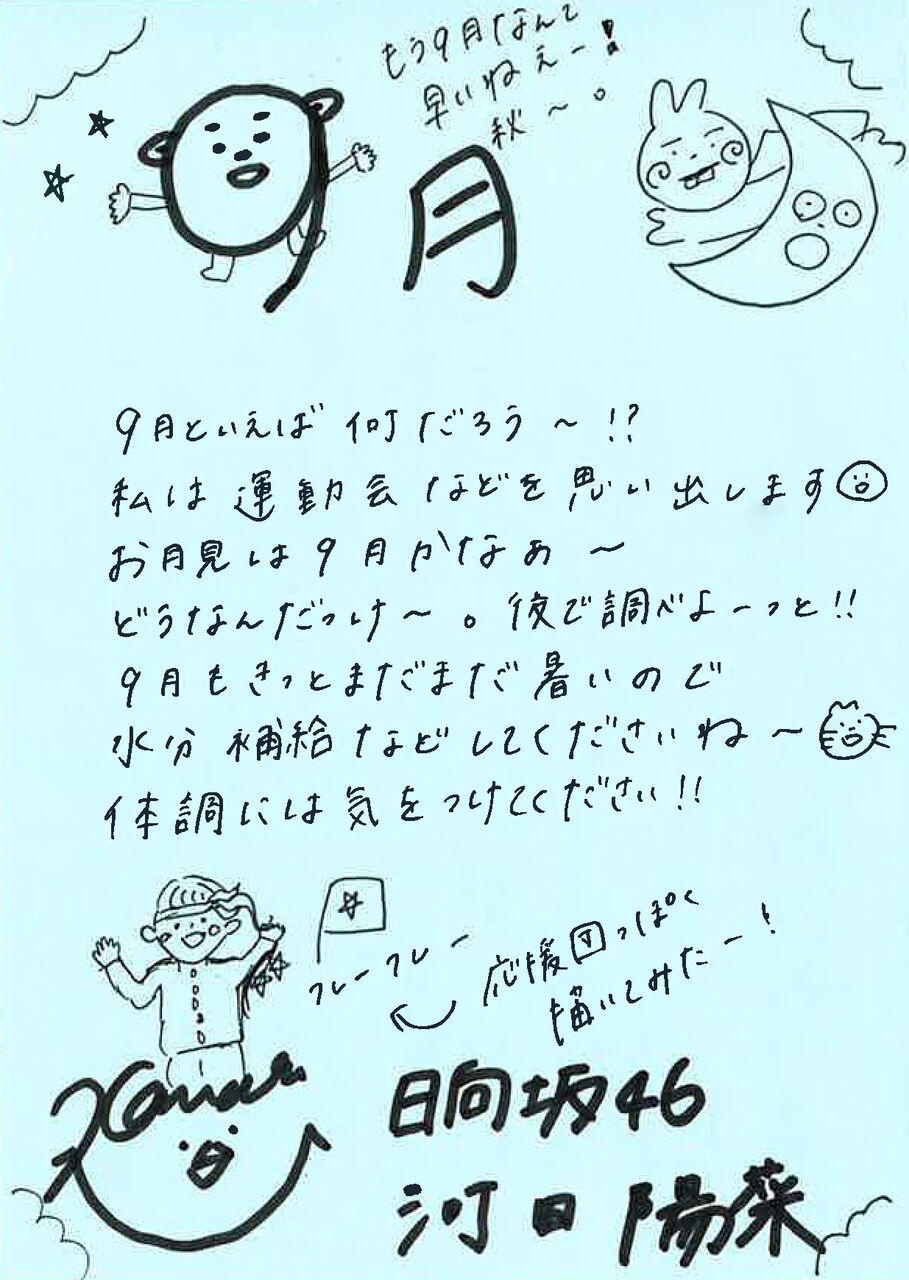 もう9月なんて
早いねぇー!
秋〜。
9月
9月といえば何だろう〜!?
私は運動会などを思い出します
お月見は9月かなぁ〜
どうなんだっけ〜。後で調べよーっと!!
9月もきっとまだまだ暑いので
水分補給などしてくださいね〜
体調には気をつけてください!!
フレーフレー
応援団っぽく
描いてみたー!
Kanari
日向坂46
河田陽菜